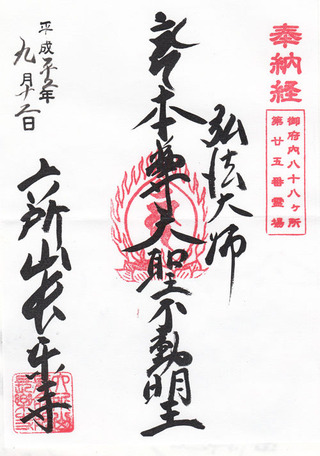 奉納経
御府内八十八ヶ所
第廿五番霊場
弘法大師
本尊大聖不動明王
六所山長楽寺
平成
九月十二日